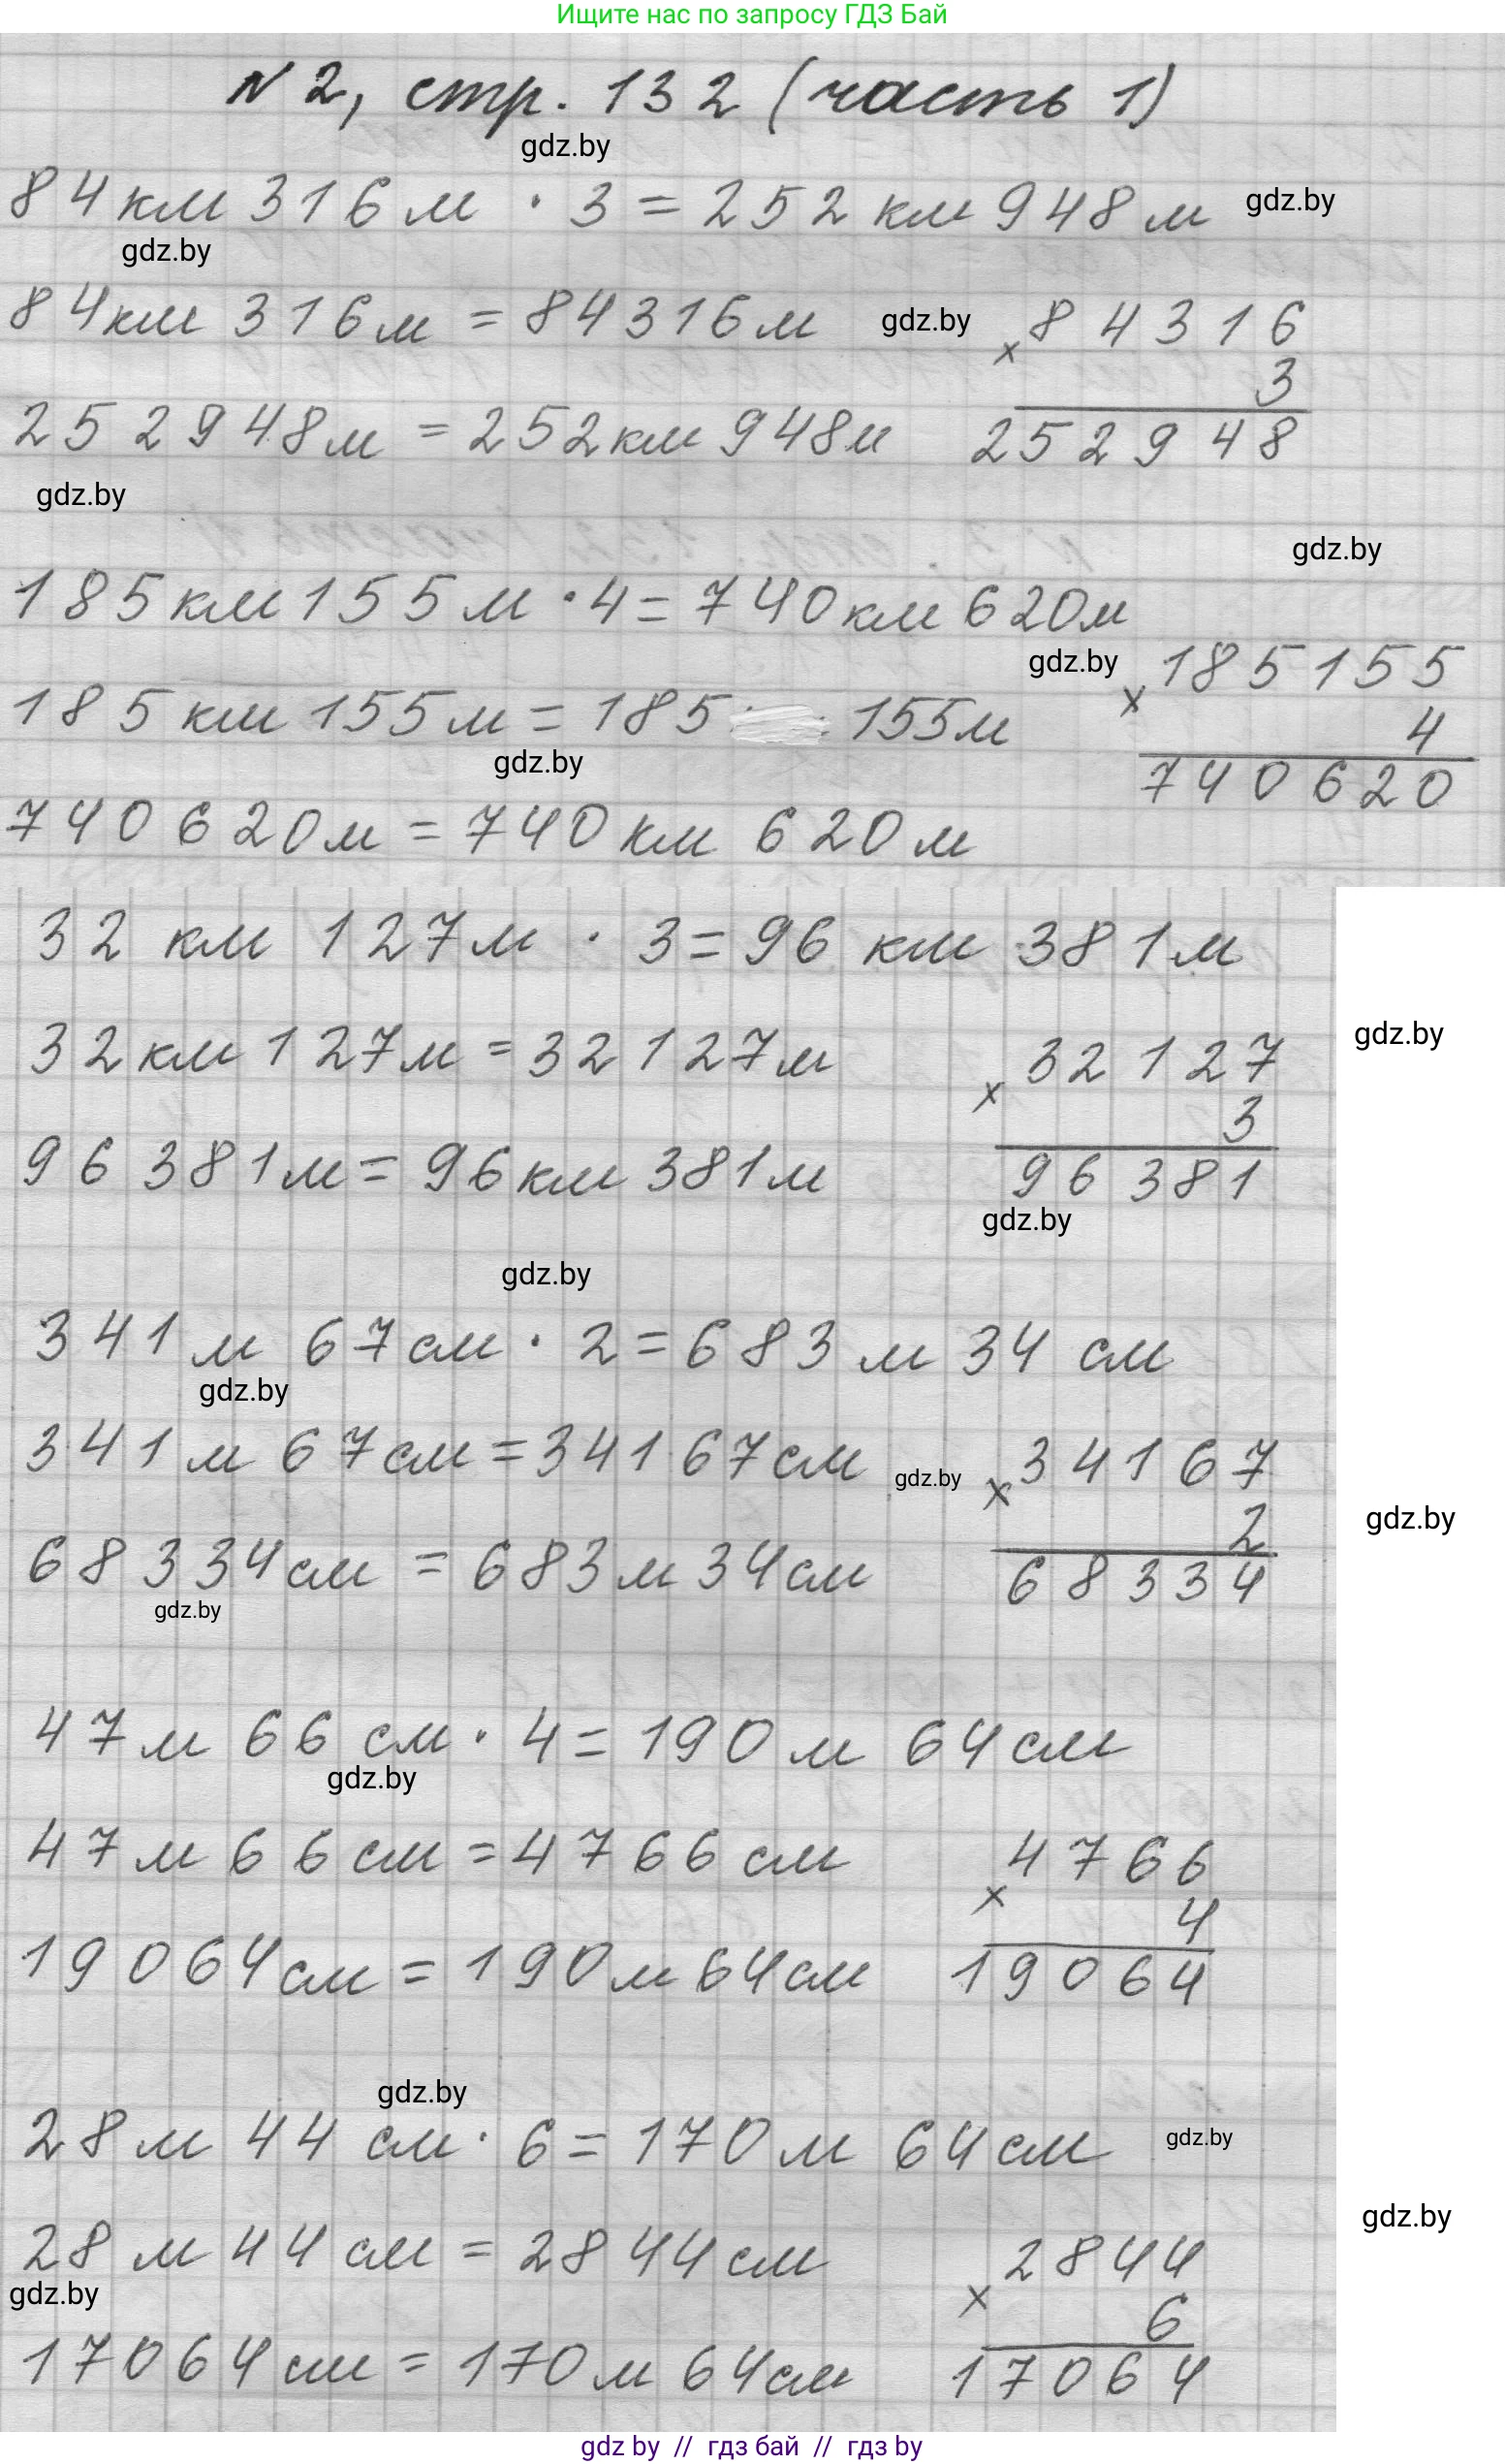 Ищите нас по запросу ГДЗ Бай
N 2, стр. 132 (часть 1)
gdz.by
84 км 316 м · 3 = 252 км 948 м gdz.by
gdz.by
84 км 316 м = 84316 м gdz.by × 84316
3
252948 м = 252 км 948 м 252948
gdz.by
gdz.by
185 км 155 м · 4 = 740 км 620 м
gdz.by × 185155
185 км 155 м = 185 155 м 4
gdz.by
740620
740 620 м = 740 км 620 м
32 км 127 м · 3 = 96 км 381 м
gdz.by
32 км 127 м = 32127 м × 32127
3
96 381 м = 96 км 381 м 96381
gdz.by
gdz.by
341 м 67 см · 2 = 683 м 34 см
gdz.by
341 м 67 см = 34167 см gdz.by × 34167
2 gdz.by
68334 см = 683 м 34 см 68334
gdz.by
47 м 66 см · 4 = 190 м 64 см
gdz.by
47 м 66 см = 4766 см × 4766
4
19064 см = 190 м 64 см 19064
gdz.by
28 м 44 см · 6 = 170 м 64 см gdz.by
gdz.by
28 м 44 см = 2844 см × 2844
gdz.by 6
17064 см = 170 м 64 см 17064
gdz by // гдз бай // гдз by